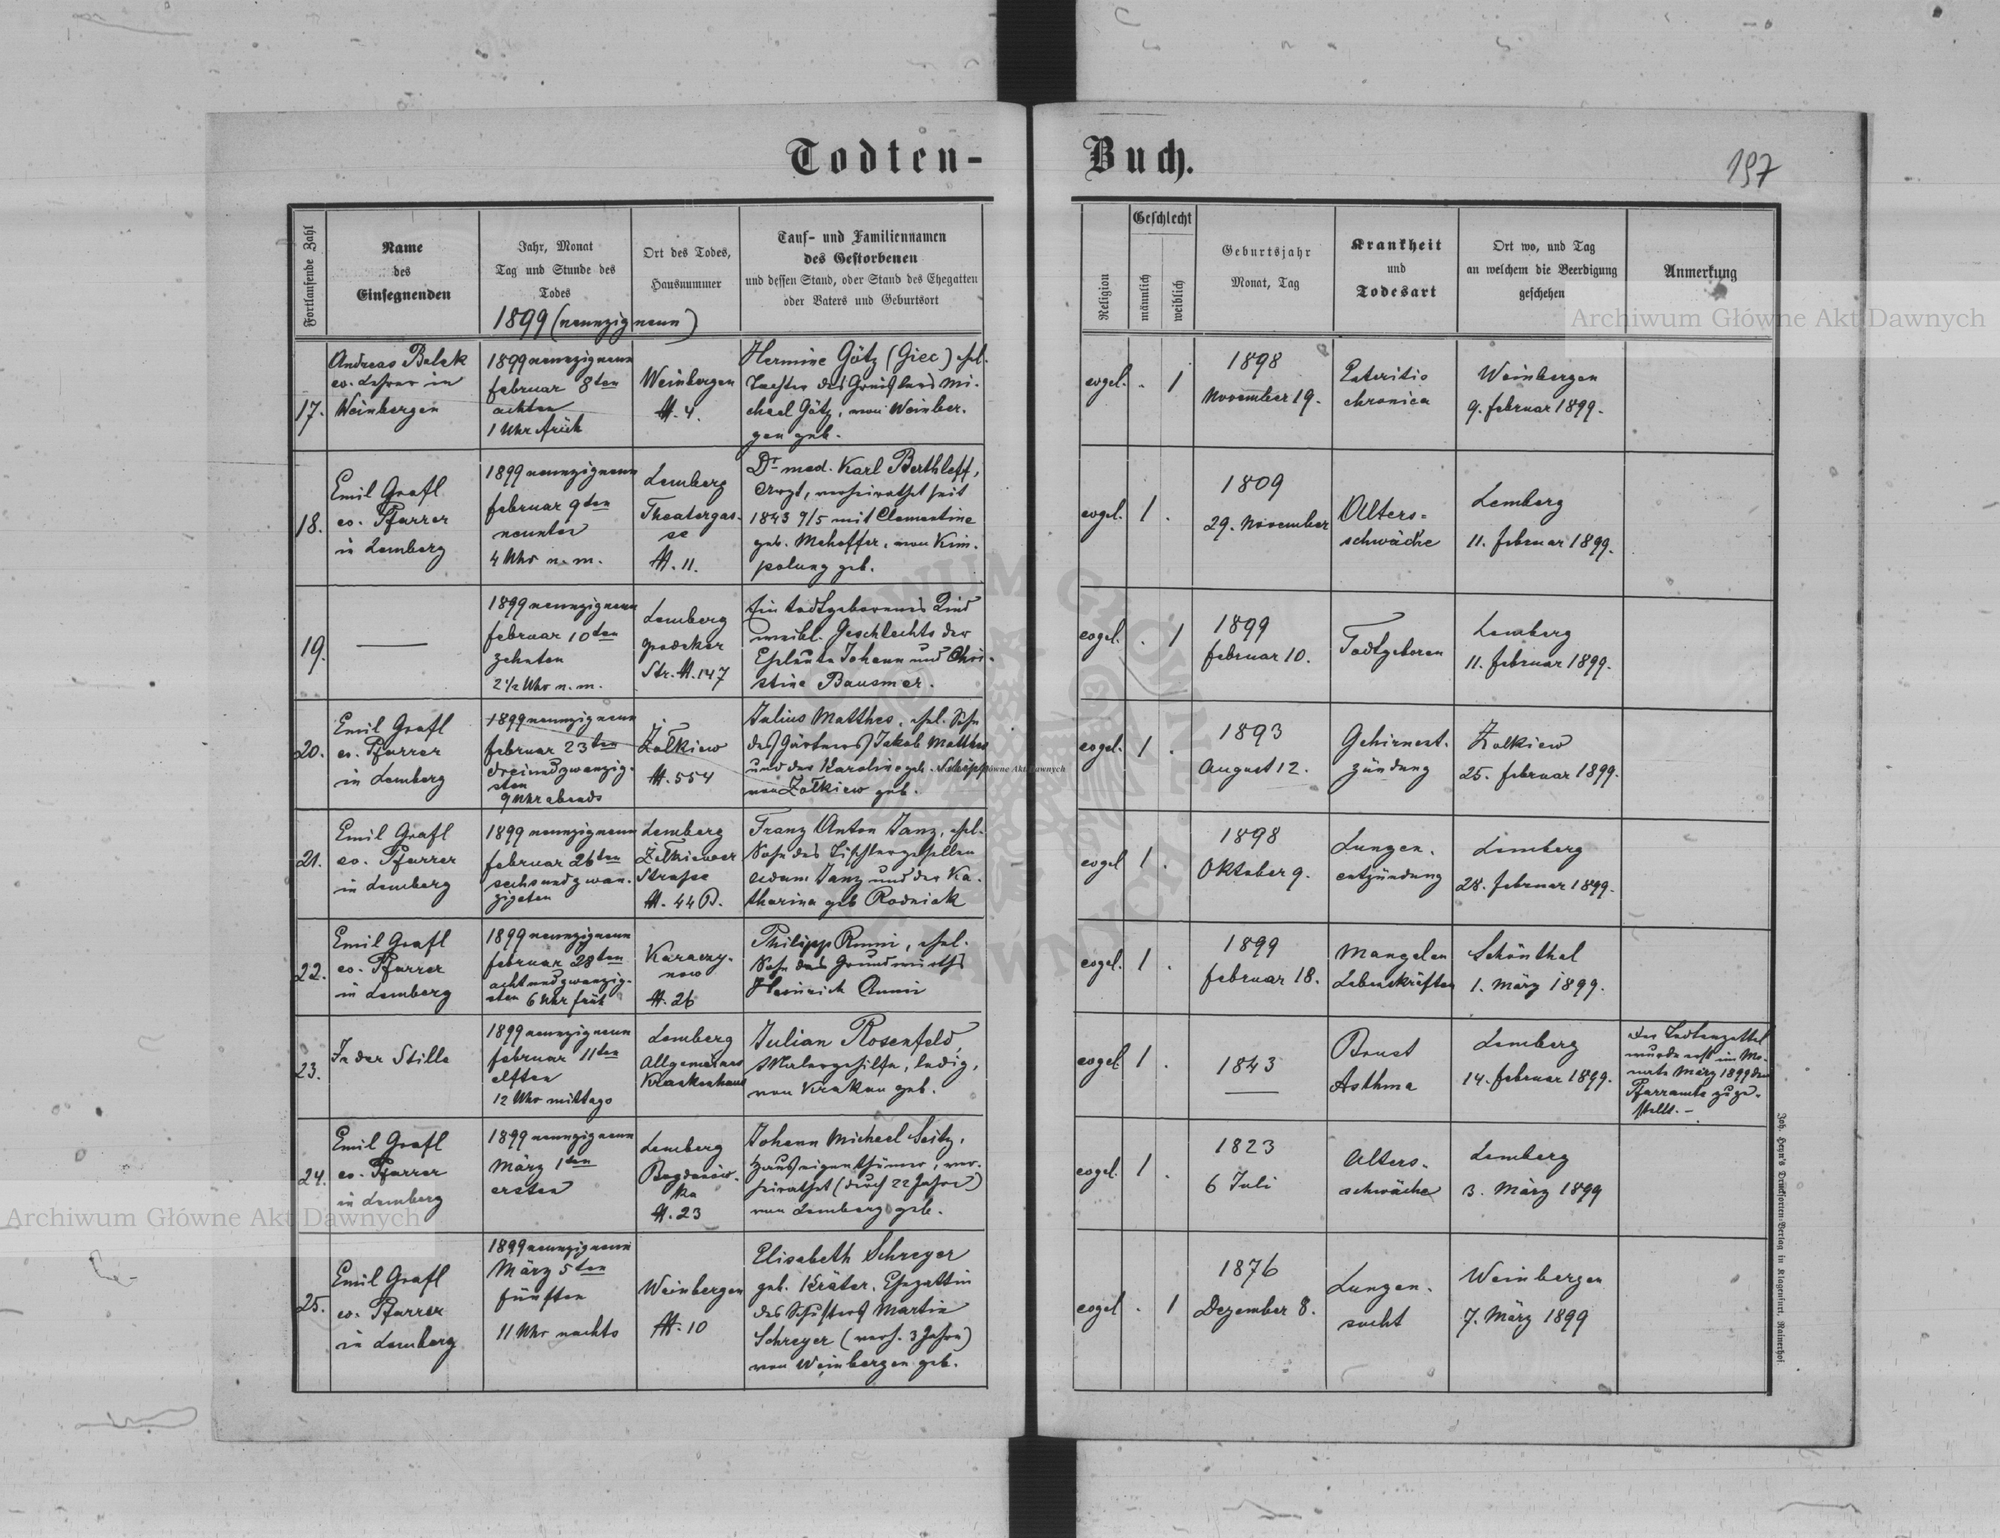 Todten-
Buch.
197
Fortlaufende Zahl
Name
des
Einsegnenden
Jahr, Monat
Tag und Stunde des
Todes
1899 (neunzigneun)
Ort des Todes,
Hausnummer
Tauf- und Familiennamen
des Gestorbenen
und dessen Stand, oder Stand des Ehegatten
oder Vaters und Geburtsort
Religion
Geschlecht
männlich
weiblich
Geburtsjahr
Monat, Tag
Krankheit
und
Todesart
Ort wo, und Tag
an welchem die Beerdigung
geschehen
Anmerkung
17.
Andreas Belek
ev. Lehrer in
Weinbergen
1899 neunzigneun
Februar 8ten
achten
1 Uhr früh
Weinbergen
N. 4.
Hermine Götz (Giec) ehel.
Tochter des Grundwirts Mi-
chael Götz, von Weinber-
gen geb.
evgel.
.
1
1898
November 19.
Enteritis
chronica
Weinbergen
9. Februar 1899.
18.
Emil Grafl
ev. Pfarrer
in Lemberg
1899 neunzigneun
Februar 9ten
neunten
4 Uhr n. m.
Lemberg
Theatergas-
se
N. 11.
Dr. med. Karl Berthleff,
Arzt, verheirathet seit
1843 9/5 mit Clementine
geb. Mehoffer, von Kim-
polung geb.
evgel.
1
.
1809
29. November
Alters-
schwäche
Lemberg
11. Februar 1899.
19.
1899 neunzigneun
Februar 10ten
zehnten
2½ Uhr n. m.
Lemberg
Grodeker
Str. N. 147
Ein todtgeborenes Kind
weibl. Geschlechts der
Eheleute Johann und Chri-
stine Bausmer.
evgel.
.
1
1899
Februar 10.
Todtgeboren
Lemberg
11. Februar 1899.
20.
Emil Grafl
ev. Pfarrer
in Lemberg
1899 neunzigneun
Februar 23ten
dreiundzwanzig-
sten
9 Uhr abends
Żołkiew
N. 554
Julius Matthes, ehel. Sohn
des Gärtners Jakob Matthes
und der Karoline geb. Schöpp
von Żołkiew geb.
evgel.
1
.
1893
August 12.
Gehirnent-
zündung
Zolkiew
25. Februar 1899.
21.
Emil Grafl
ev. Pfarrer
in Lemberg
1899 neunzigneun
Februar 26ten
sechsundzwan-
zigsten
Lemberg
Żołkiewer
Strasse
N. 44 B.
Franz Anton Janz, ehel.
Sohn des Tischlergesellen
Adam Janz und der Ka-
tharina geb. Rodniek
evgel
1
.
1898
Oktober 9.
Lungen-
entzündung
Lemberg
28. Februar 1899.
22.
Emil Grafl
ev. Pfarrer
in Lemberg
1899 neunzigneun
Februar 28ten
achtundzwanzig-
sten 6 Uhr früh
Karaczy-
now
N. 26
Philipp Rumi, ehel.
Sohn des Grundwirths
Heinrich Rumi
evgel.
1
.
1899
Februar 18.
Mangel an
Lebenskräften
Schönthal
1. März 1899.
23.
In der Stille
1899 neunzigneun
Februar 11ten
elften
12 Uhr mittags
Lemberg
Allgemeines
Krankenhaus
Julian Rosenfeld,
Malergehilfe, ledig,
von Krakau geb.
evgel
1
.
1843
Brust
Asthma
Lemberg
14. Februar 1899.
Der Todtenzettel
wurde erst im Mo-
nate März 1899 dem
Pfarramte zuge-
stellt. –
24.
Emil Grafl
ev. Pfarrer
in Lemberg
1899 neunzigneun
März 1ten
ersten
Lemberg
Bogdanow-
ka
N. 23
Johann Michael Seitz,
Hauseigenthümer, ver-
heirathet (durch 22 Jahre)
von Lemberg geb.
evgel.
1
.
1823
6 Juli
Alters-
schwäche
Lemberg
3. März 1899
25.
Emil Grafl
ev. Pfarrer
in Lemberg
1899 neunzigneun
März 5ten
fünften
11 Uhr nachts
Weinbergen
N. 10
Elisabeth Schreyer
geb. Kräter, Ehegattin
des Schusters Martin
Schreyer (verh. 3 Jahre)
von Weinbergen geb.
evgel
.
1
1876
Dezember 8.
Lungen-
sucht
Weinbergen
7. März 1899
Joh. Heyn's Drucksorten-Verlag in Klagenfurt, Rainerhof.
Archiwum Główne Akt Dawnych
Archiwum Główne Akt Dawnych